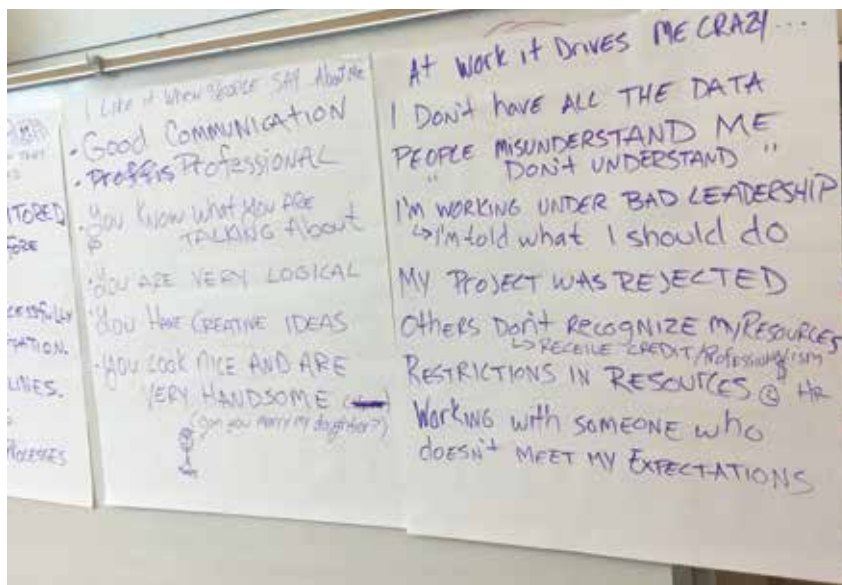 ITORED
I Like it when People SAY About Me
• Good COMMUNICATION
• Professional
• You Know what You ARE
TALKING About
• You ARE VERY LOGICAL
• You Have CREATIVE IDEAS
• You Look NICE AND ARE
VERY HANDSOME
(can you marry my daughter?)
At Work it Drives ME CRAZY...
I Don't have ALL THE DATA
PEOPLE MISUNDERSTAND ME
" Don't UNDERSTAND "
I'm WORKING UNDER BAD LEADERSHIP
↳ I'm told what I should do
MY PROJECT WAS REJECTED
Others Don't Recognize my Resources
↳ RECEIVE CREDIT/Professionalism
RESTRICTIONS IN RESOURCES HR
Working with someone who
doesn't MEET MY EXPECTATIONS